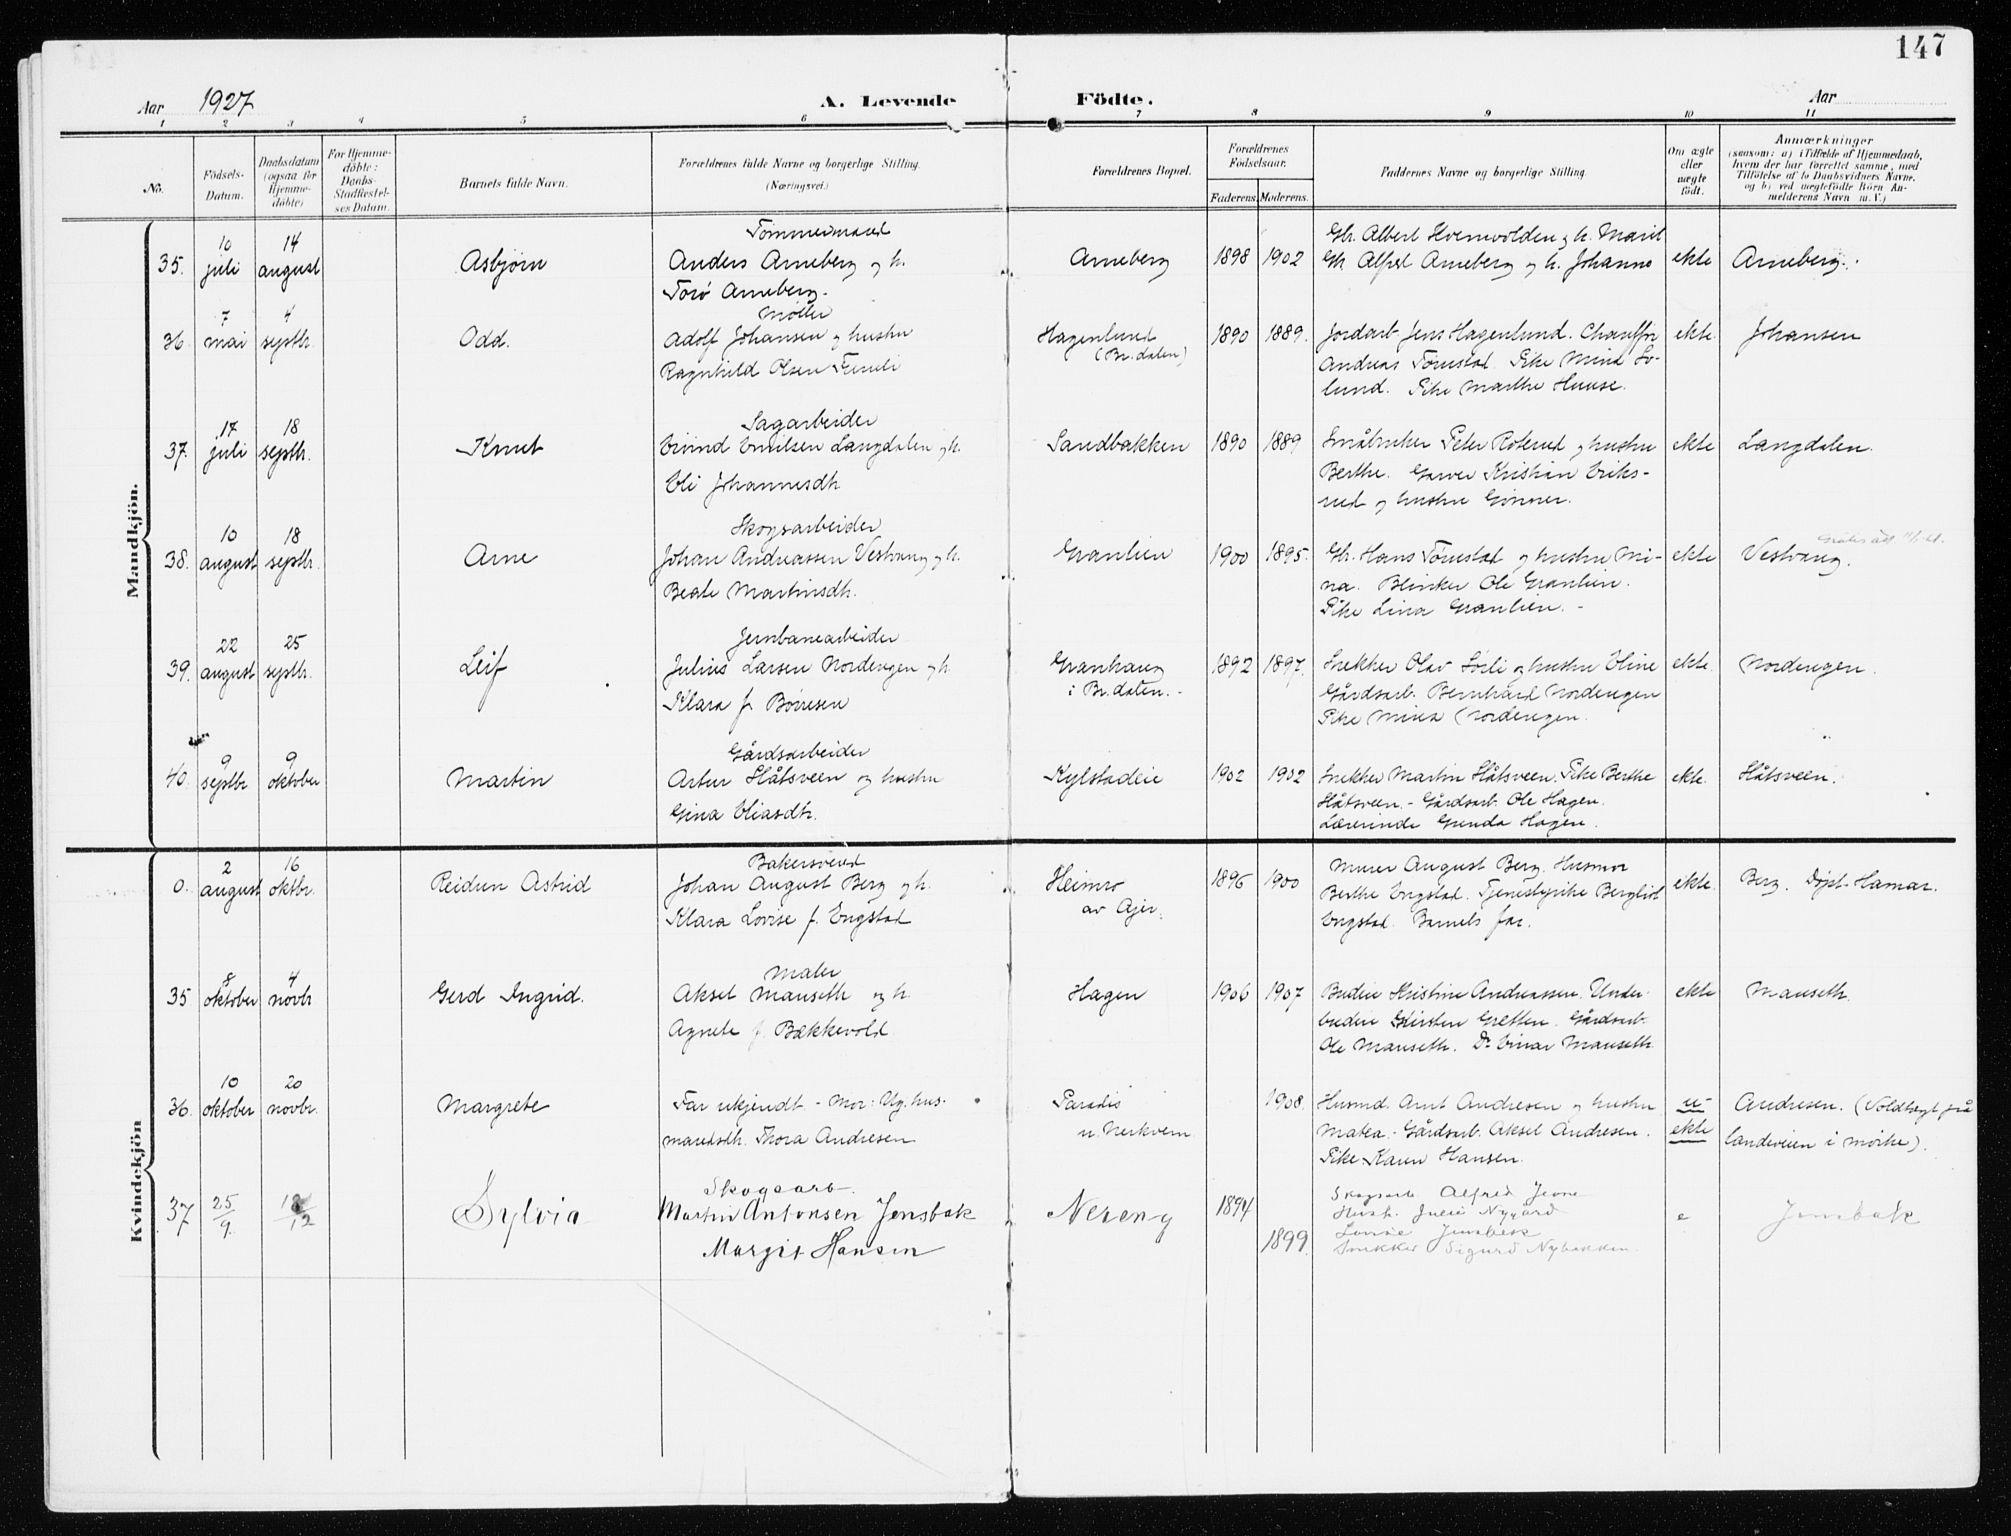 147
Aar 1927 A. Levende Födte. Aar
1 2 3 4 5 6 7 8 9 10 11
No.
Födsels-
Datum.
Daabsdatum
(ogsaa for
Hjemme-
döbte)
For Hjemme-
döbte:
Daabs-
Stadfæstel-
ses Datum.
Barnets fulde Navn.
Forældrenes fulde Navne og borgerlige Stilling.
(Næringsvei.)
Forældrenes Bopæl.
Forældrenes
Födselsaar.
Faderens. Moderens.
Faddernes Navne og borgerlige Stilling.
Om ægte
eller
uægte
födt.
Anmærkninger
(saasom: a) i Tilfælde af Hjemmedaab,
hvem der har forrettet samme, med
Tilföielse af to Daabsvidners Navne,
og b) ved uægtefödte Börn An-
melderens Navn m. V.)
Mandkjön.
35. 10 juli 14 august Asbjørn
Tømmermand
Anders Arneberg og h.
Torø Arneberg.
Arneberg 1898 1902
Gbr. Albert Hvemvolden og h. Marit
Gbr Alfred Arneberg og h. Johanne
ekte Arneberg.
36. 7 mai 4 septbr. Odd.
Møller
Adolf Johansen og hustru
Ragnhild Olsen
Hagenlund
(Br.dalen)
1890 1889.
Jordarb. Jens Hagenlund. Chauffør
Andreas Tømstad. Pike Mina So-
lund. Pike Marthe Huuse.
ekte. Johansen
37. 17 juli 18 septbr. Knut
Sagarbeider
Eivind Emilsen Langdalen og h.
Eli Johannesdtr.
Sandbakken 1890 1889
Småbruker Peter Roterud og hustru
Berthe. Garver Kristian Eriks-
rud og hustru Gønner.
ekte Langdalen.
38. 10 august 18 septbr. Arne
Skogsarbeider
Johan Andreassen Vestvang og h.
Beate Martinsdtr.
Granlien 1900 1895.
Gbr. Hans Tømstad og hustru Mi-
na. Blinker Ole Granlien.
Pike Lina Granlien.
ekte Vestvang.
39. 22 august 25 septbr. Leif
Jernbanearbeider
Julius Larsen Nordengen og h.
Klara f. Børresen
Granhaug
i Br.dalen.
1892 1897.
Snekker Olav Sørli og hustru Eline
Gårdsarb. Bernhard Nordengen
Pike Mina Nordengen.
ekte. Nordengen.
40. 9 septbr 9 oktober Martin
Gårdsarbeider
Artur Slåtsveen og hustru
Gina Eliasdtr.
Kylstadeie 1902 1902
Snekker Martin Slåtsveen. Pike Berthe
Slåtsveen. - Gårdsarb. Ole Hagen.
Lærerinde Gunda Hagen.
ekte. Slåtsveen.
Kvindekjön
0. 2 august 16 oktbr. Reidun Astrid
Bakersvend
Johan August Berg og h.
Klara Lovise f. Engstad
Heimro
av Ajer.
1896 1900
Murer August Berg. Husmor
Berthe Engstad. Tjenestepike Bergliot
Engstad. Barnets far.
ekte. Berg. Døpt Hamar.
35 8 oktober 4 novbr Gerd Ingrid.
Maler
Aksel Mauseth og h.
Agnete f. Bækkevold
Hagen 1906 1907
Budeie Kristine Andreassen. Under-
budeie Kirsten Gretten. Gårdsarb.
Ole Mauseth. Do Einar Mauseth
ekte Mauseth.
36. 10 oktober 20 novbr. Margrete
Far ukjendt - Mor: Ug. hus-
mandsdtr. Thora Andresen
Paradis
u. Nerkvern
1908.
Husmd. Arnt Andresen og hustru
Matea. - Gårdsarb. Aksel Andresen.
Pike Karen Hansen.
u-
ekte
Andresen. (Voldtagt på
landeveien i mørke).
37 25/9. 18/12 Sylvia
Skogsarb.
Martin Antonsen Jensbak
Margit Hansen
Nereng 1894
1899.
Skogsarb Alfred Jevne
Hust. Julie Nygård
Lovise Jensbak
Snekker Sigurd Nybakken.
e Jensbak